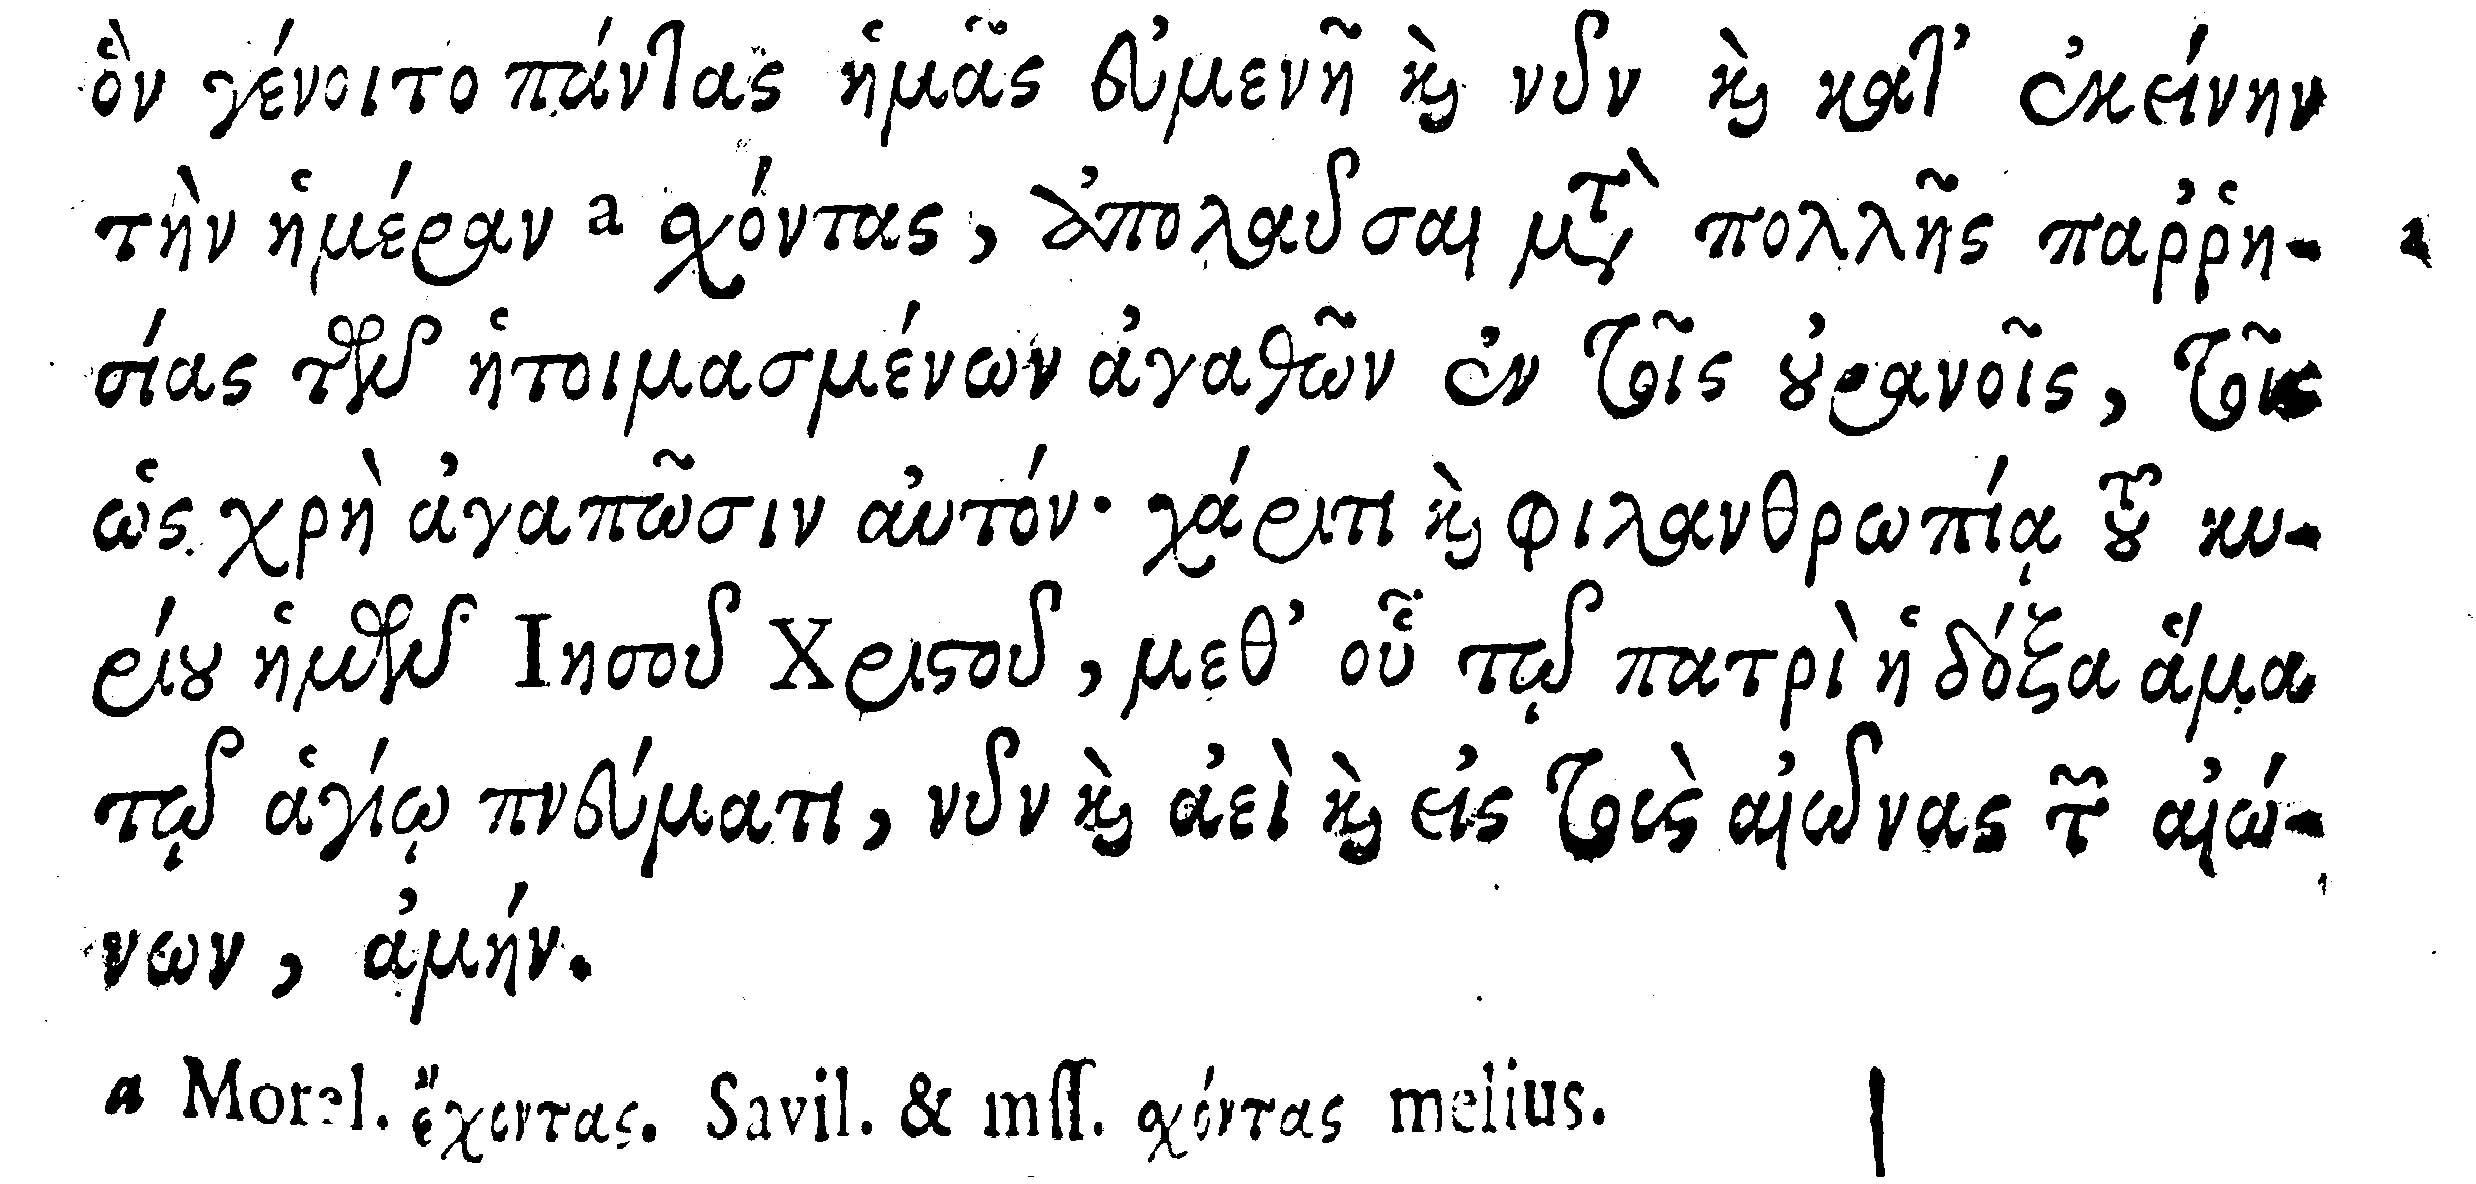 ὃν γένοιτο πάντας ἡμᾶς εὐμενῆ καὶ νῦν καὶ κατ’ ἐκείνην
τὴν ἡμέραν a σχόντας, ἀπολαῦσαι μετὰ πολλῆς παῤῥη- a
σίας τῶν ἡτοιμασμένων ἀγαθῶν ἐν τοῖς οὐρανοῖς, τοῖς
ὡς χρὴ ἀγαπῶσιν αὐτόν· χάριτι καὶ φιλανθρωπίᾳ τοῦ κυ-
ρίου ἡμῶν Ιησοῦ Χριστοῦ, μεθ’ οὗ τῷ πατρὶ ἡ δόξα ἅμα
τῷ ἁγίῳ πνεύματι, νῦν καὶ ἀεὶ καὶ εἰς τοὺς αἰῶνας τῶν αἰώ-
νων, ἀμήν.
a Morel. ἔχοντας. Savil. & mſſ. σχόντας melius.